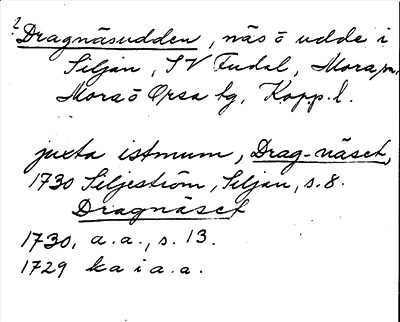 ? Dragnäsudden, näs o udde i
Siljan, SV Fudal, Mora sn,
Mora o Orsa tg, Kopp. l.
juxta istmum, Drag-näset,
1730 Siljeström, Siljan, s. 8.
Dragnäset
1730, a.a., s. 13.
1729 ka i a.a.